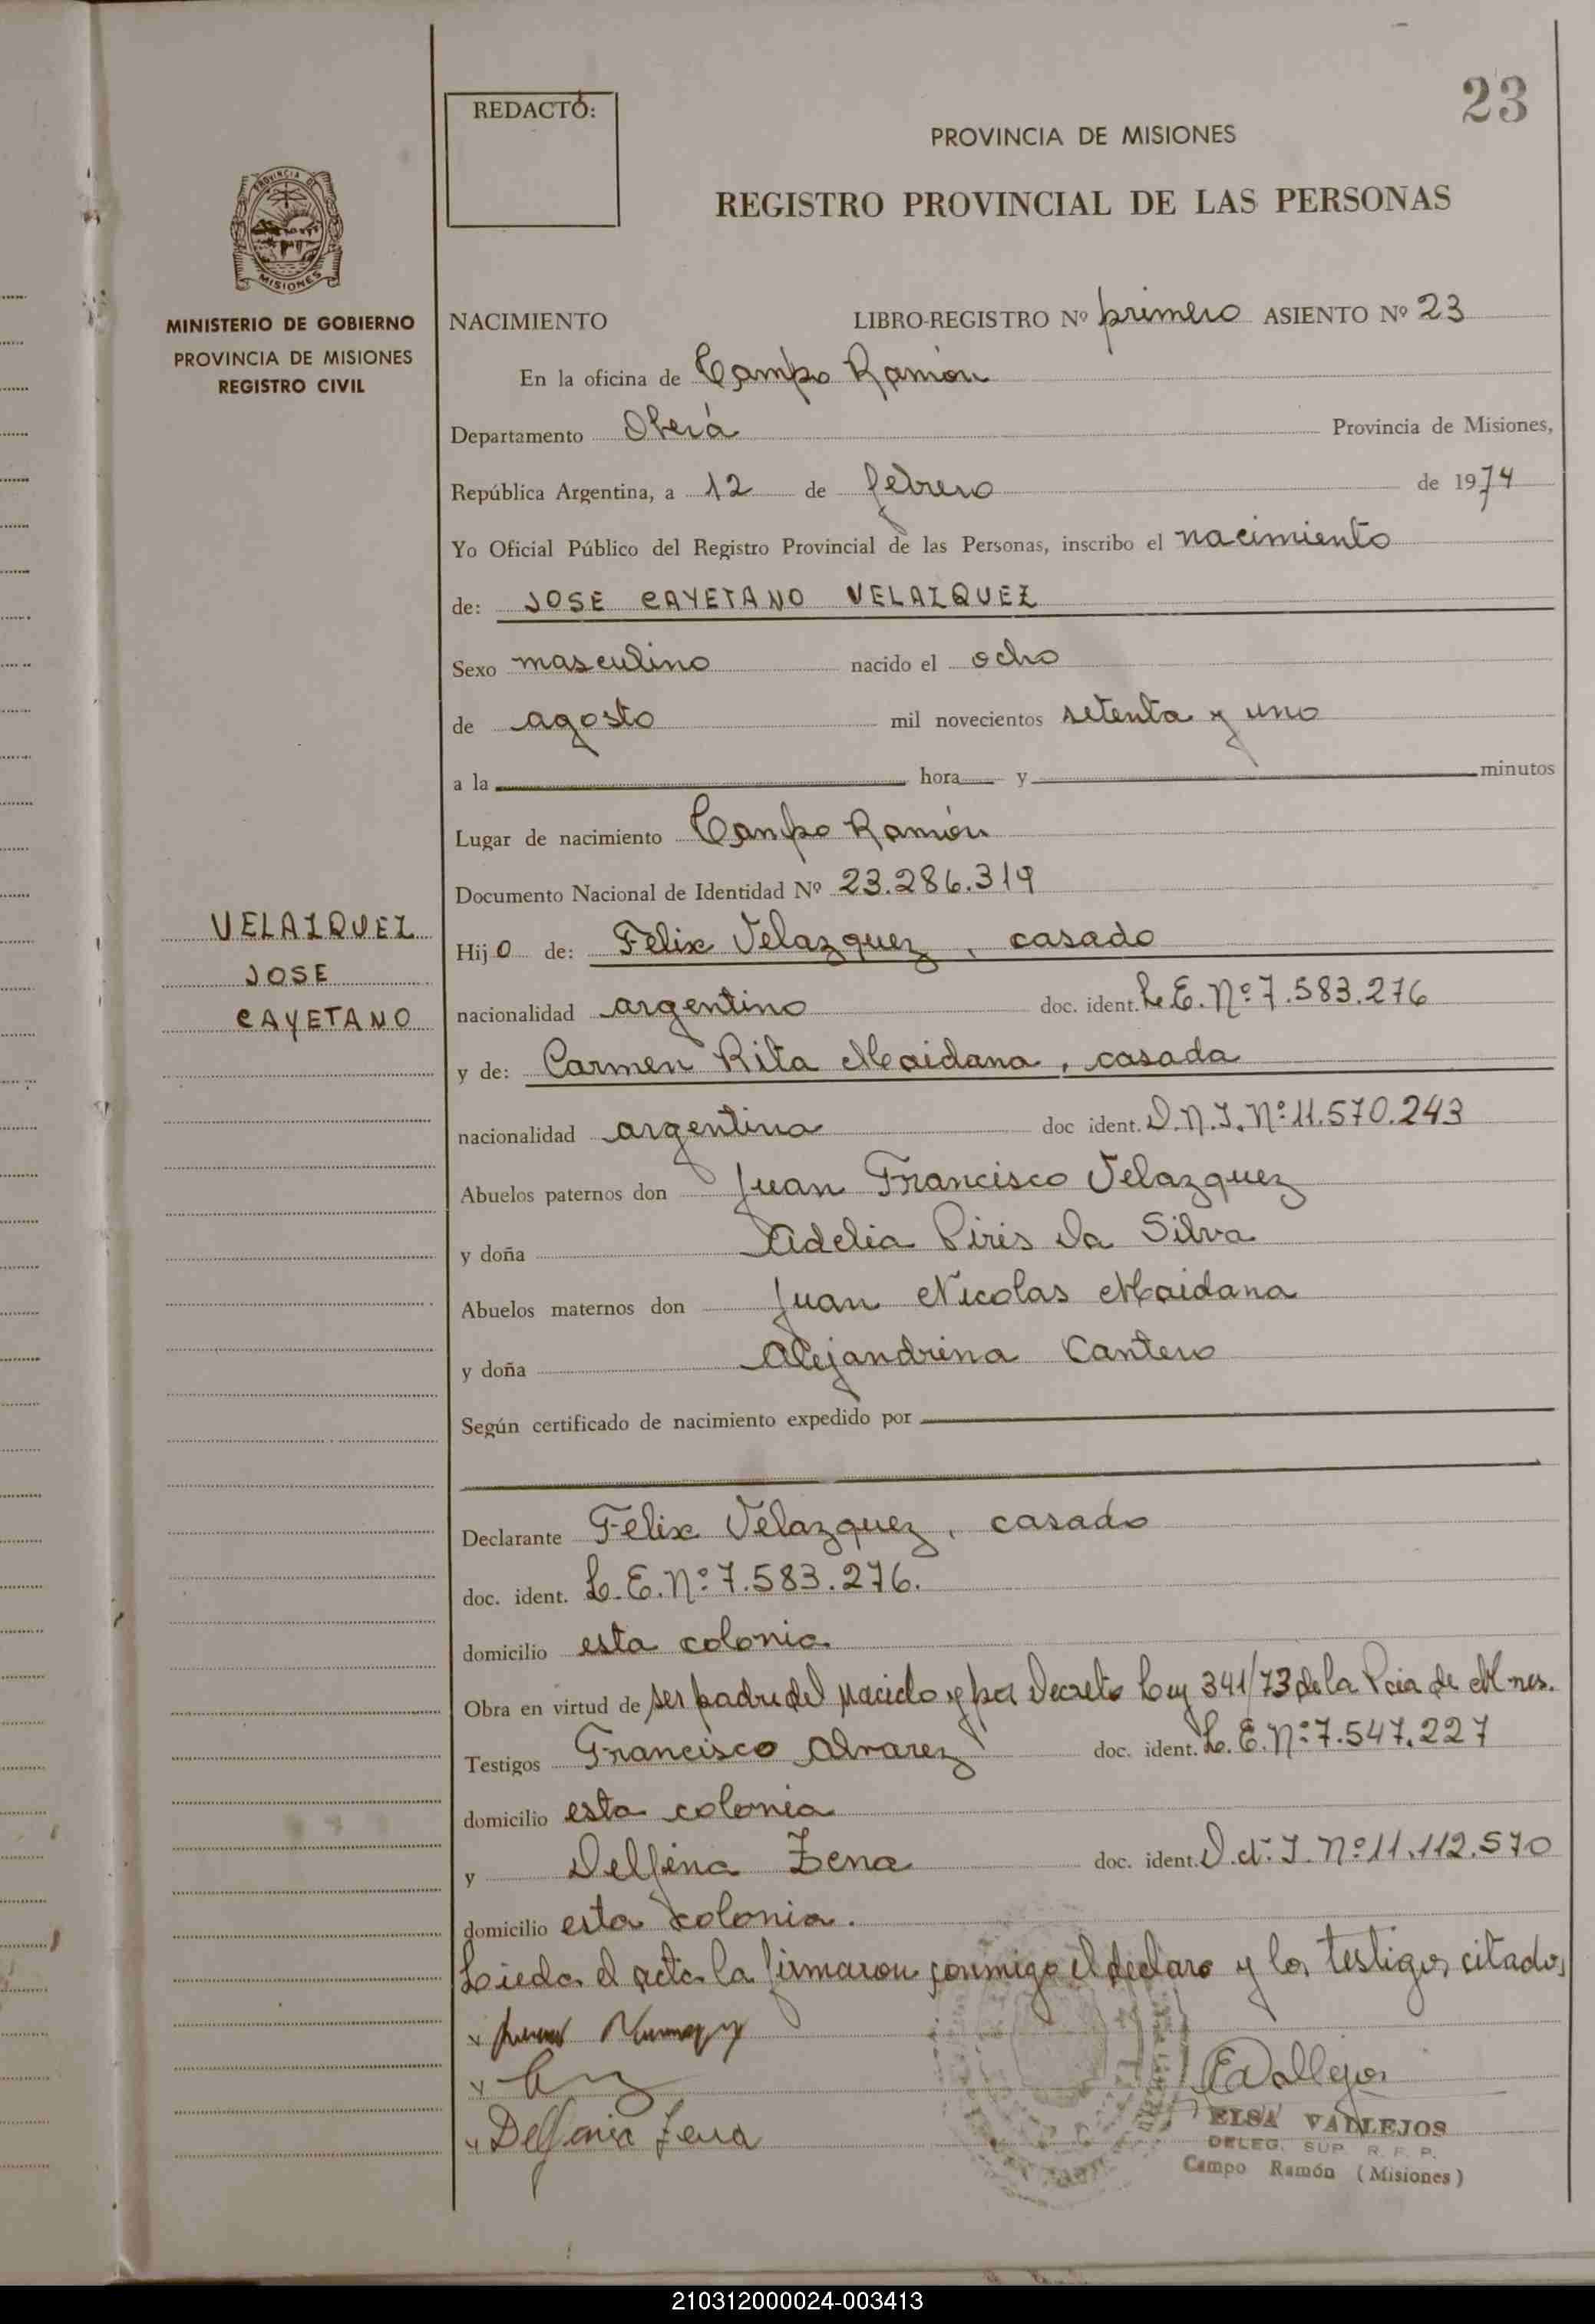 23
REDACTÓ:
PROVINCIA DE MISIONES
REGISTRO PROVINCIAL DE LAS PERSONAS
PROVINCIA DE
MISIONES
MINISTERIO DE GOBIERNO
PROVINCIA DE MISIONES
REGISTRO CIVIL
NACIMIENTO LIBRO-REGISTRO Nº primero ASIENTO Nº 23
En la oficina de Campo Ramón
Departamento Oberá Provincia de Misiones,
República Argentina, a 12 de febrero de 1974
Yo Oficial Público del Registro Provincial de las Personas, inscribo el nacimiento
de: JOSE CAYETANO VELAZQUEZ
Sexo masculino nacido el ocho
de agosto mil novecientos setenta y uno
a la hora y minutos
Lugar de nacimiento Campo Ramón
Documento Nacional de Identidad Nº 23.286.319
VELAZQUEZ
JOSE
CAYETANO
Hijo de: Felix Velazquez, casado
nacionalidad argentino doc. ident. L.E. Nº 7.583.276
y de: Carmen Rita Maidana, casada
nacionalidad argentina doc ident. D.N.I. Nº 11.570.243
Abuelos paternos don Juan Francisco Velazquez
y doña Adelia Piris Da Silva
Abuelos maternos don Juan Nicolas Maidana
y doña Alejandrina Cantero
Según certificado de nacimiento expedido por
Declarante Felix Velazquez, casado
doc. ident. L.E. Nº 7.583.276.
domicilio esta colonia
Obra en virtud de ser padre del nacido y por Decreto Ley 341/73 de la Pcia de Mnes.
Testigos Francisco Alvarez doc. ident. L.E. Nº 7.547.227
domicilio esta colonia
y Delfina Zena doc. ident. D.N.I. Nº 11.112.570
domicilio esta colonia.
Leida el acta la firmaron conmigo el declaro y los testigos citados
x
x
x Zena
EVallejos
ELSA VALLEJOS
DELEG. SUP. R. P. P.
Campo Ramón (Misiones)
210312000024-003413